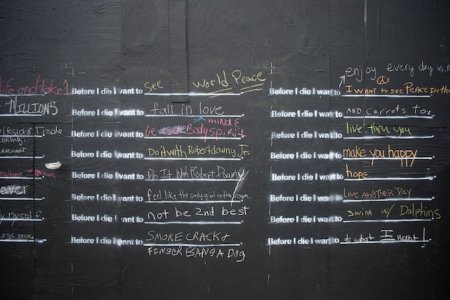 life and take 1
MILLIONS
ever
myself
Before I die I want to see world Peace
Before I die I want to fall in love
Before I die I want to be Body Spirit
Before I die I want to Do it with Robert downy Jr.
Before I die I want to Do It With Robert Downy
Before I die I want to feel like the only girl in the room
Before I die I want to not be 2nd best
Before I die I want to SMOKE CRACK &
FINGER BANG A DOG
enjoy every day
Before I die I want to I want to see PEACE IN THE
Before I die I want to AND CARROTS TOO
Before I die I want to live thru you
Before I die I want to make you happy
Before I die I want to hope
Before I die I want to LOVE ANOTHER DAY
Before I die I want to SWIM W/ DOLPHINS
Before I die I want to do what I want!